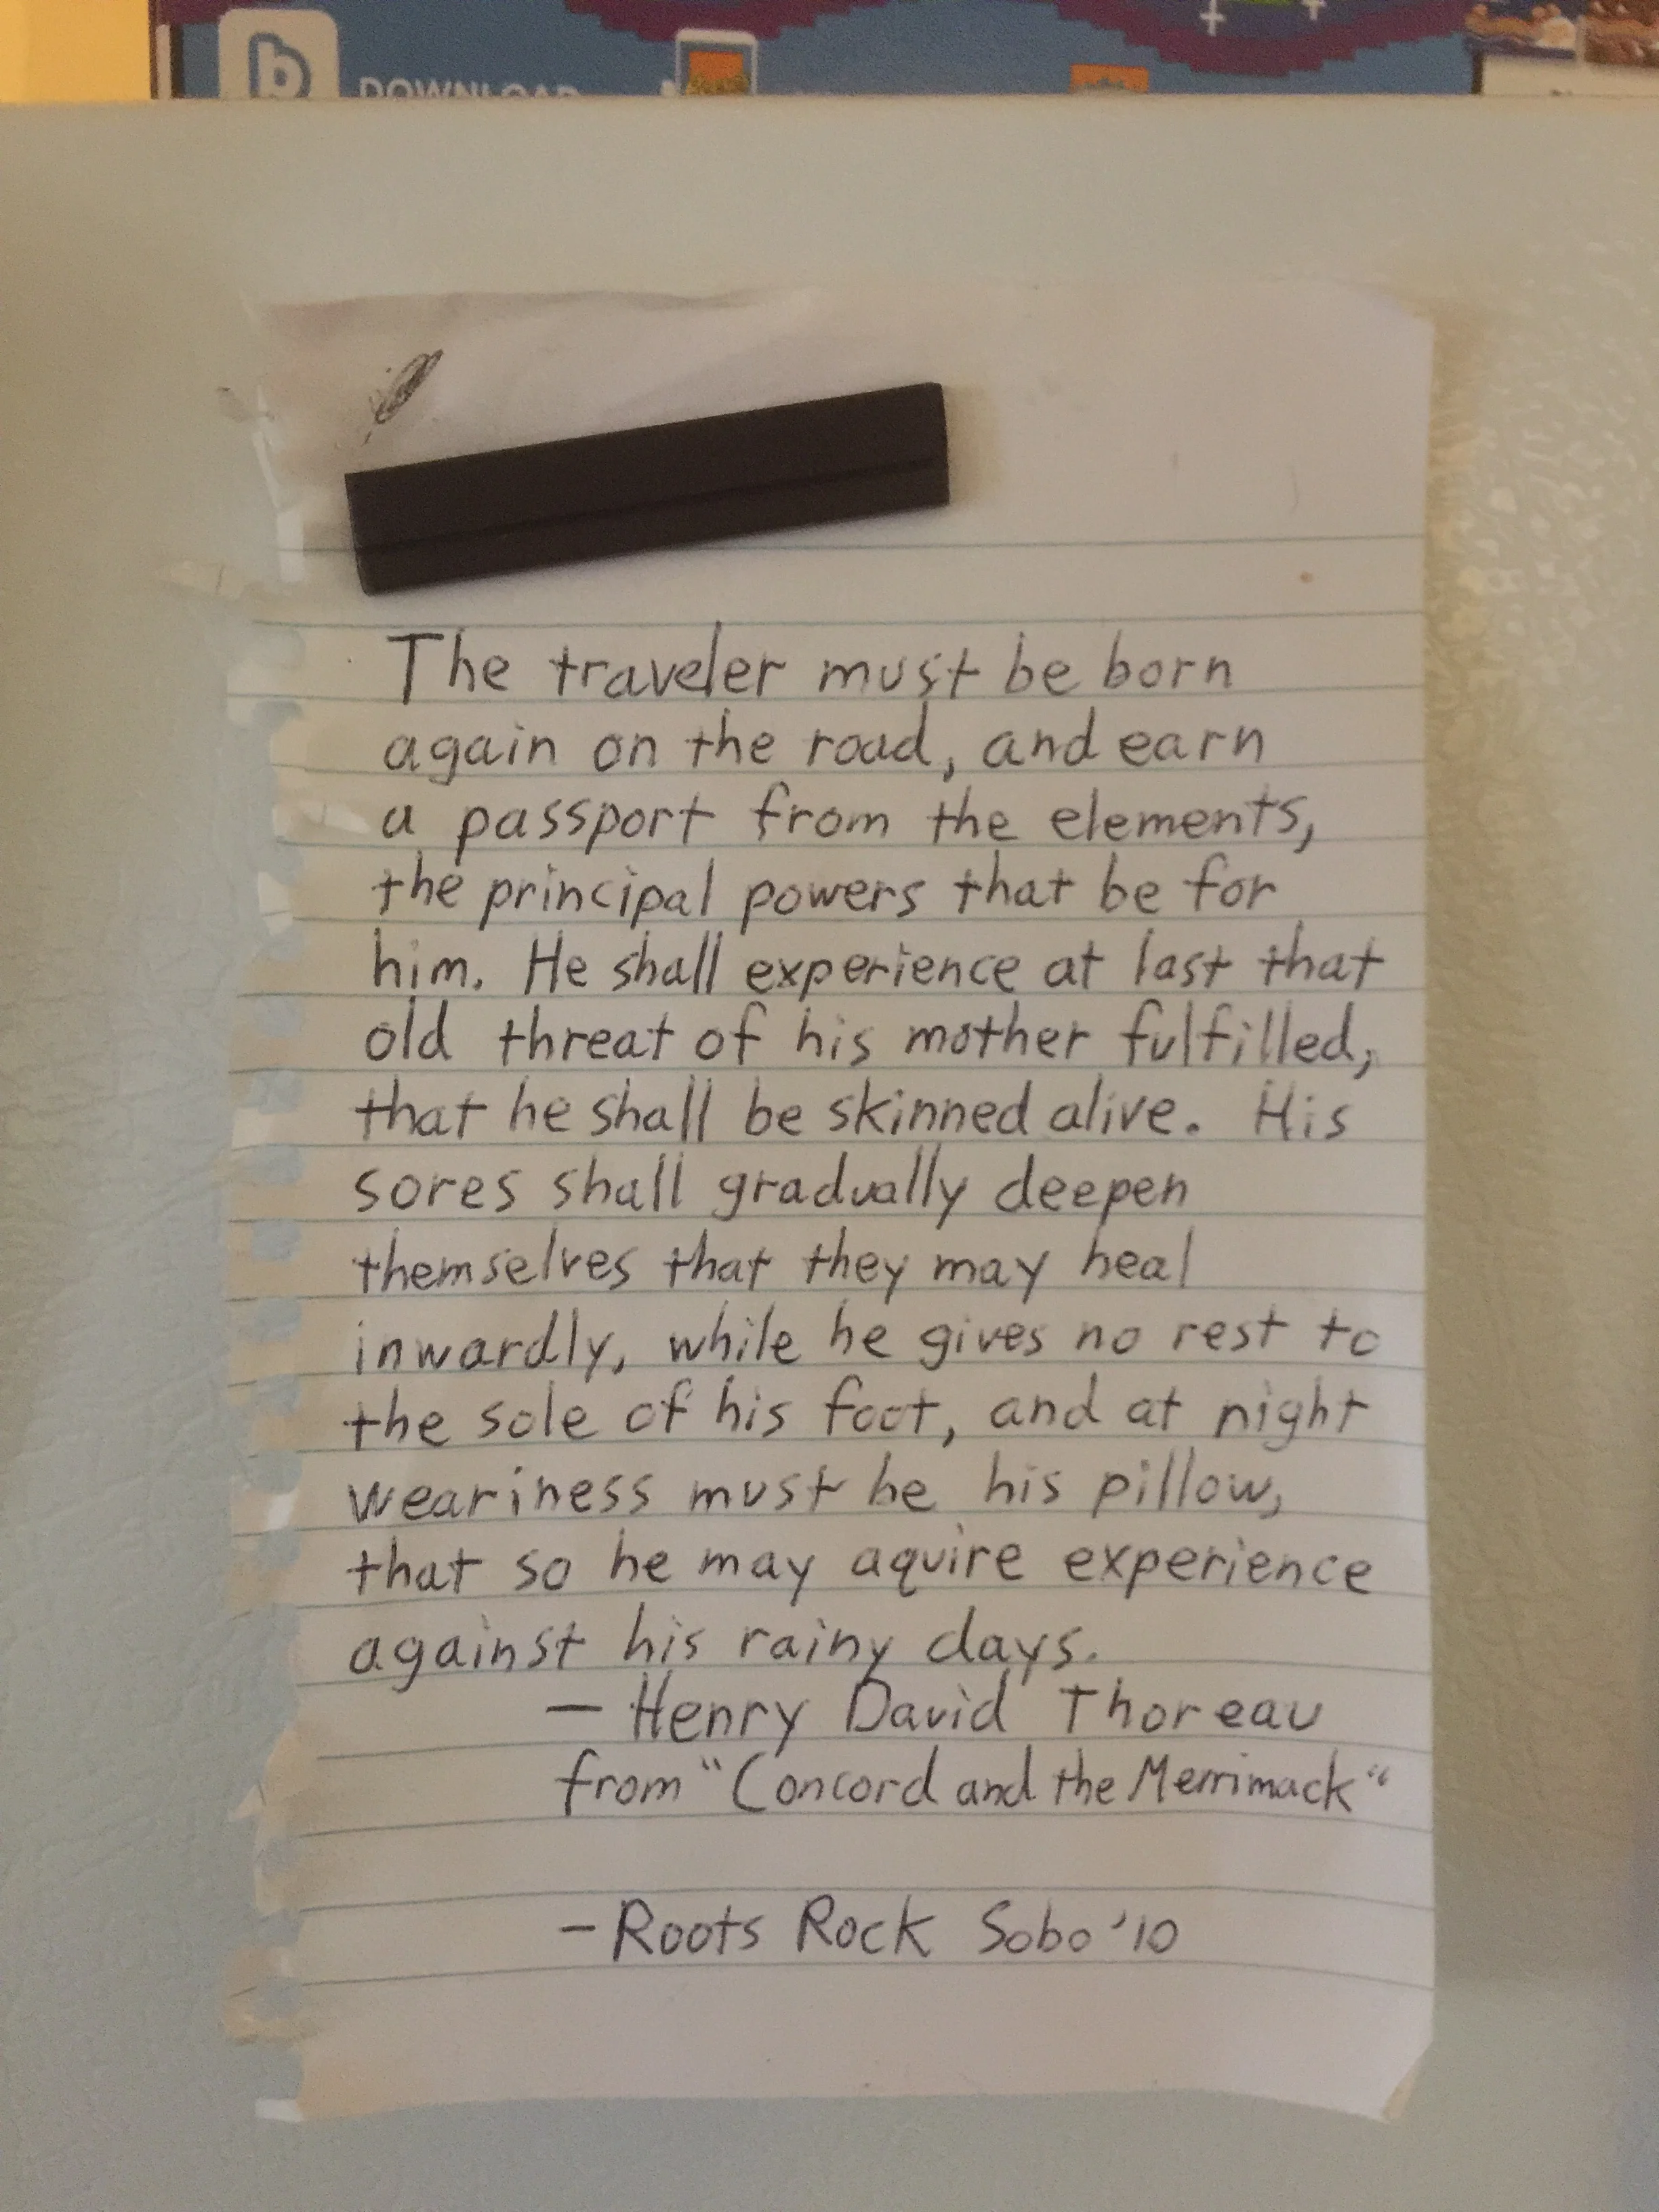 b DOWNLOAD
The traveler must be born
again on the road, and earn
a passport from the elements,
the principal powers that be for
him. He shall experience at last that
old threat of his mother fulfilled,
that he shall be skinned alive. His
sores shall gradually deepen
themselves that they may heal
inwardly, while he gives no rest to
the sole of his foot, and at night
weariness must be his pillow,
that so he may aquire experience
against his rainy days.
— Henry David Thoreau
from "Concord and the Merrimack"
- Roots Rock Sobo '10